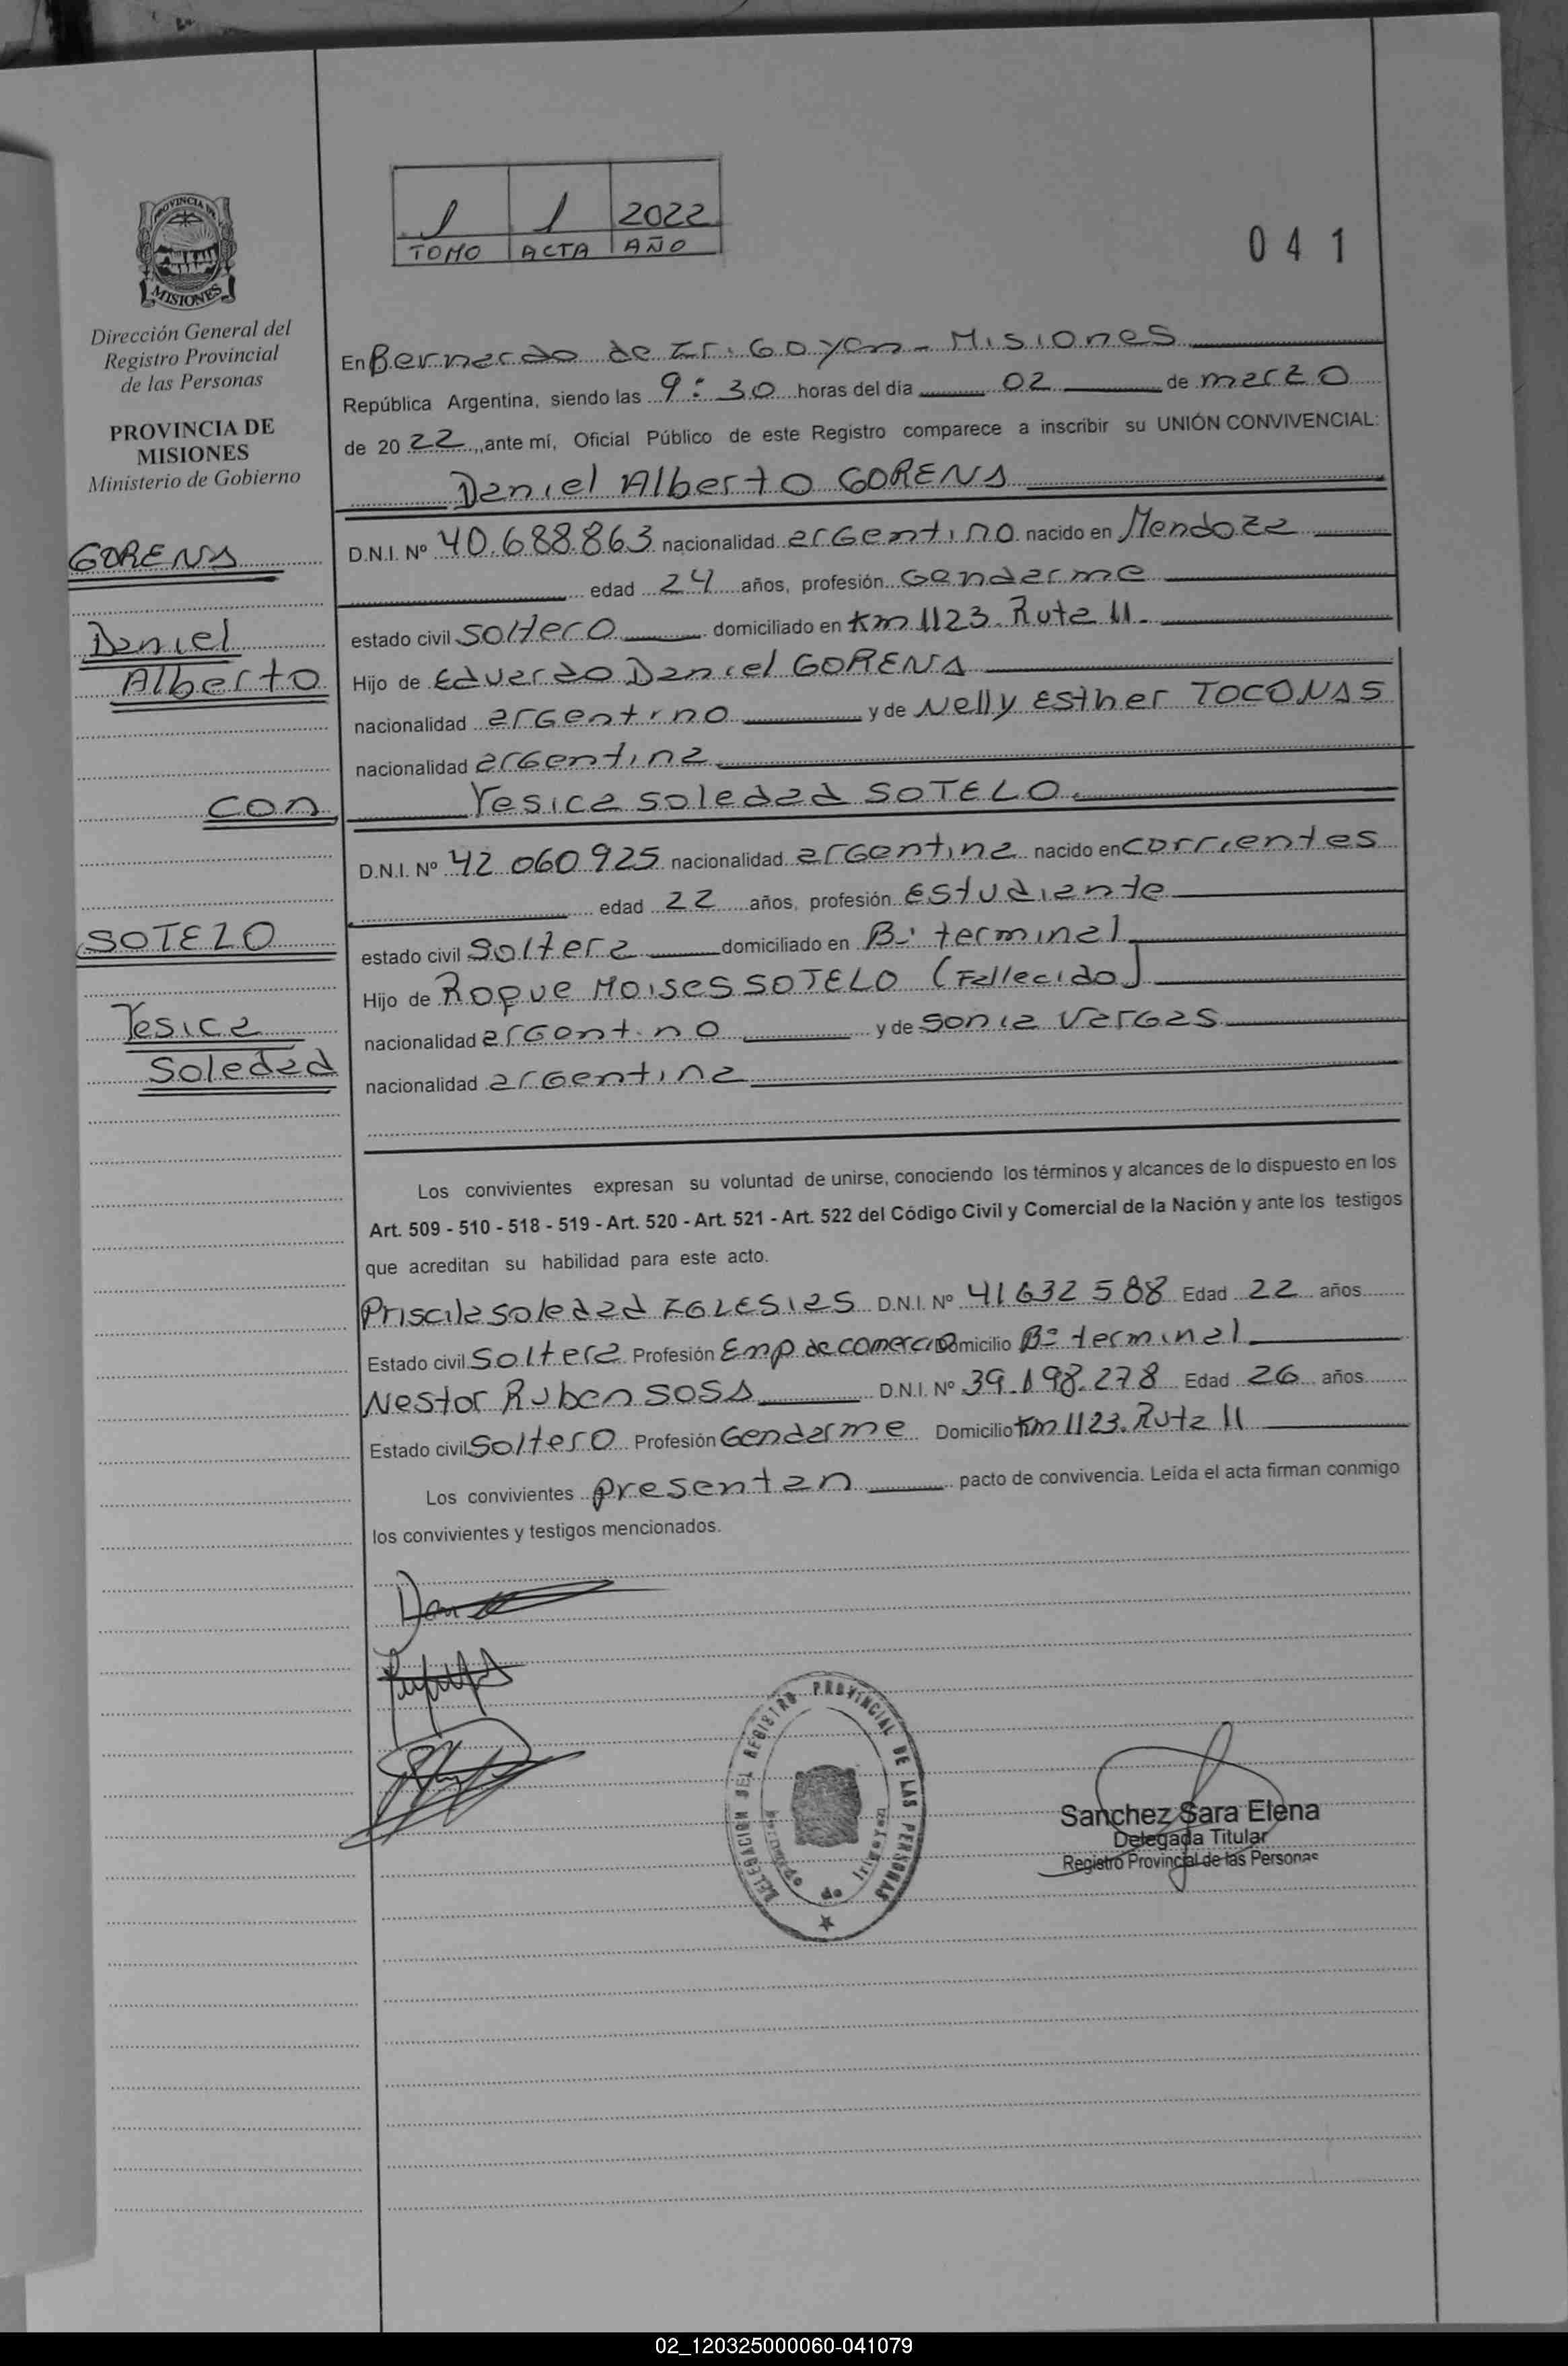 1 1 2022
TOMO ACTA AÑO
041
PROVINCIA DE
MISIONES
Dirección General del
Registro Provincial
de las Personas
PROVINCIA DE
MISIONES
Ministerio de Gobierno
GORENA
Daniel
Alberto
con
SOTELO
Yesica
Soledad
En Bernardo de Irigoyen - Misiones
República Argentina, siendo las 9:30 horas del día 02 de marzo
de 2022, ante mí, Oficial Público de este Registro comparece a inscribir su UNIÓN CONVIVENCIAL:
Daniel Alberto GORENA
D.N.I. Nº 40.688.863 nacionalidad argentino nacido en Mendoza
edad 24 años, profesión Gendarme
estado civil soltero domiciliado en Km 1123. Ruta 11.
Hijo de Eduardo Daniel GORENA
nacionalidad argentino y de Nelly Esther TOCONAS
nacionalidad argentina
Yesica Soledad SOTELO
D.N.I. Nº 42 060 925 nacionalidad argentina nacido en corrientes
edad 22 años, profesión Estudiante
estado civil Soltera domiciliado en Bº terminal
Hijo de Roque Moises SOTELO (Fallecido)
nacionalidad argentino y de Sonia Vargas
nacionalidad argentina
Los convivientes expresan su voluntad de unirse, conociendo los términos y alcances de lo dispuesto en los
Art. 509 - 510 - 518 - 519 - Art. 520 - Art. 521 - Art. 522 del Código Civil y Comercial de la Nación y ante los testigos
que acreditan su habilidad para este acto.
Priscila Soledad IGLESIAS D.N.I. Nº 41 632 588 Edad 22 años
Estado civil Soltera Profesión Emp de comercio Domicilio Bº terminal
Nestor Ruben SOSA D.N.I. Nº 39.198.278 Edad 26 años
Estado civil Soltero Profesión Gendarme Domicilio Km 1123. Ruta 11
Los convivientes presentan pacto de convivencia. Leída el acta firman conmigo
los convivientes y testigos mencionados.
DELEGACION DEL REGISTRO PROVINCIAL DE LAS PERSONAS
Bernardo de Irigoyen
Sanchez Sara Elena
Delegada Titular
Registro Provincial de las Personas
02_120325000060-041079